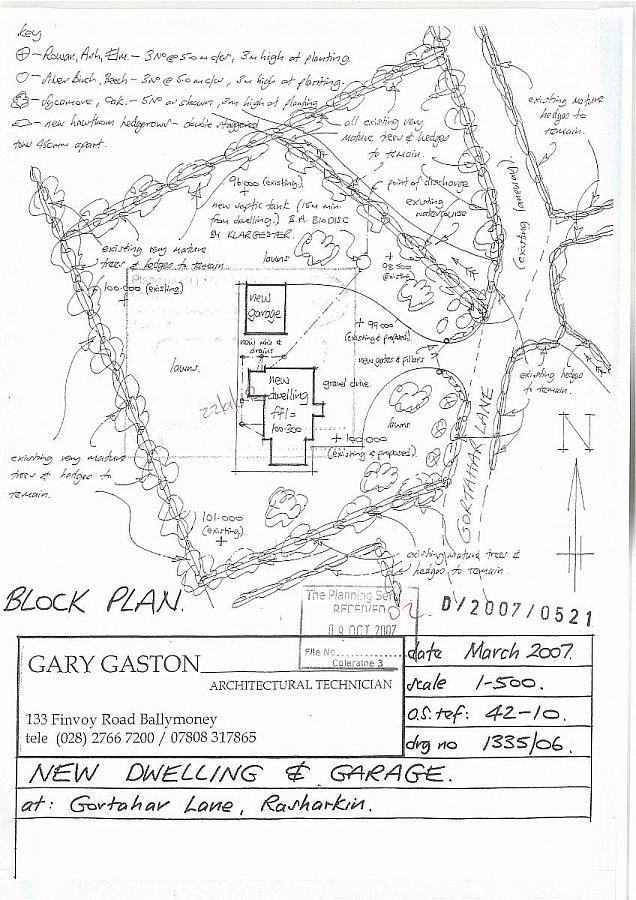 key
Rowan, Ash, Elm. - 3No @ 5.0m c/c, 3m high at planting.
Silver Birch, Beech - 3No @ 5.0m c/c, 3m high at planting.
Sycamore, Oak. - 5No as shown, 3m high at planting
new hawthorn hedgerows - double staggered
row 450mm apart.
all existing very
mature trees & hedges
to remain.
existing mature
hedges to
remain.
96.000 (existing).
new septic tank (15m min
from dwelling.) S.A. BIODISC
BY KLARGESTER.
point of discharge
existing
watercourse
(existing laneway).
existing very mature
trees & hedges to remain.
lawns
98.500
(existing)
100.000 (existing)
new
garage
99.000
(existing & proposed).
new mhs &
drains
new gates & pillars
lawns.
new
dwelling
ffl =
100.300
gravel drive.
existing hedges
to remain.
lawns
100.000
(existing & proposed).
GORTAHAR LANE
N
existing very mature
trees & hedges to
remain.
101.000
(existing).
existing mature trees &
hedges to remain.
BLOCK PLAN.
The Planning Serv
RECEIVED
09 OCT 2007
File No.
Coleraine 3
02
D/2007/0521
GARY GASTON
ARCHITECTURAL TECHNICIAN
133 Finvoy Road Ballymoney
tele (028) 2766 7200 / 07808 317865
date March 2007.
scale 1-500.
o.s. ref: 42-10.
drg no 1335/06.
NEW DWELLING & GARAGE.
at: Gortahar Lane, Rasharkin.